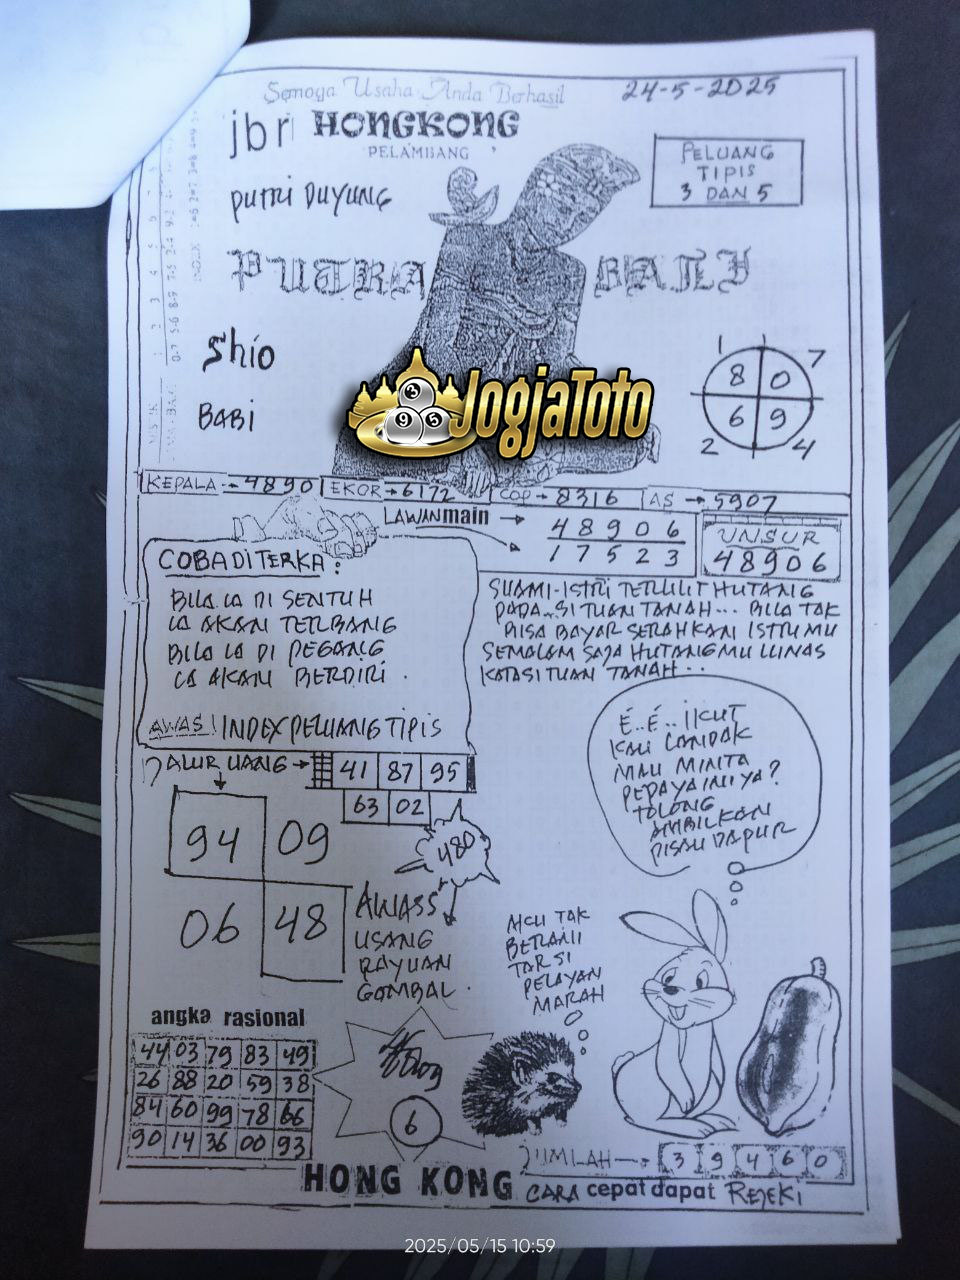 Semoga Usaha Anda Berhasil
24-5-2025
jbr HONGKONG
PELAMBANG
PELUANG
TIPIS
3 DAN 5
PUTRI DUYUNG
PUTRA BALI
Shio
BABI
JogjaToto
3
9 5
1 7
8 0
6 9
2 4
KEPALA → 4890 EKOR → 6172 COP → 8316 AS → 5907
LAWAN main → 48906
17523
UNSUR
48906
COBA DITERKA :
BILA IA DI SENTUH
IA AKAN TERBANG
BILA IA DI PEGANG
IA AKAN BERDIRI .
AWAS! INDEX PELUANG TIPIS
SUAMI-ISTRI TERLILIT HUTANG
PADA SI TUAN TANAH... BILA TAK
BISA BAYAR SERAHKAN ISTRIMU
SEMALAM SAJA HUTANGMU LUNAS
KATA SI TUAN TANAH..
E..E.. IKUT
KAU LANDAK
MAU MINTA
PEPAYA INI YA?
TOLONG
AMBILKAN
PISAU DAPUR
JALUR UANG → 41 87 95
63 02
480
94 09
06 48
AWASS
USANG
RAYUAN
GOMBAL .
AKU TAK
BERANI
TAR SI
PELAYAN
MARAH
angka rasional
44 03 79 83 49
26 88 20 59 38
84 60 99 78 66
90 14 36 00 93
6
JUMLAH → 3 9 4 6 0
HONG KONG CARA cepat dapat REJEKI
2025/05/15 10:59